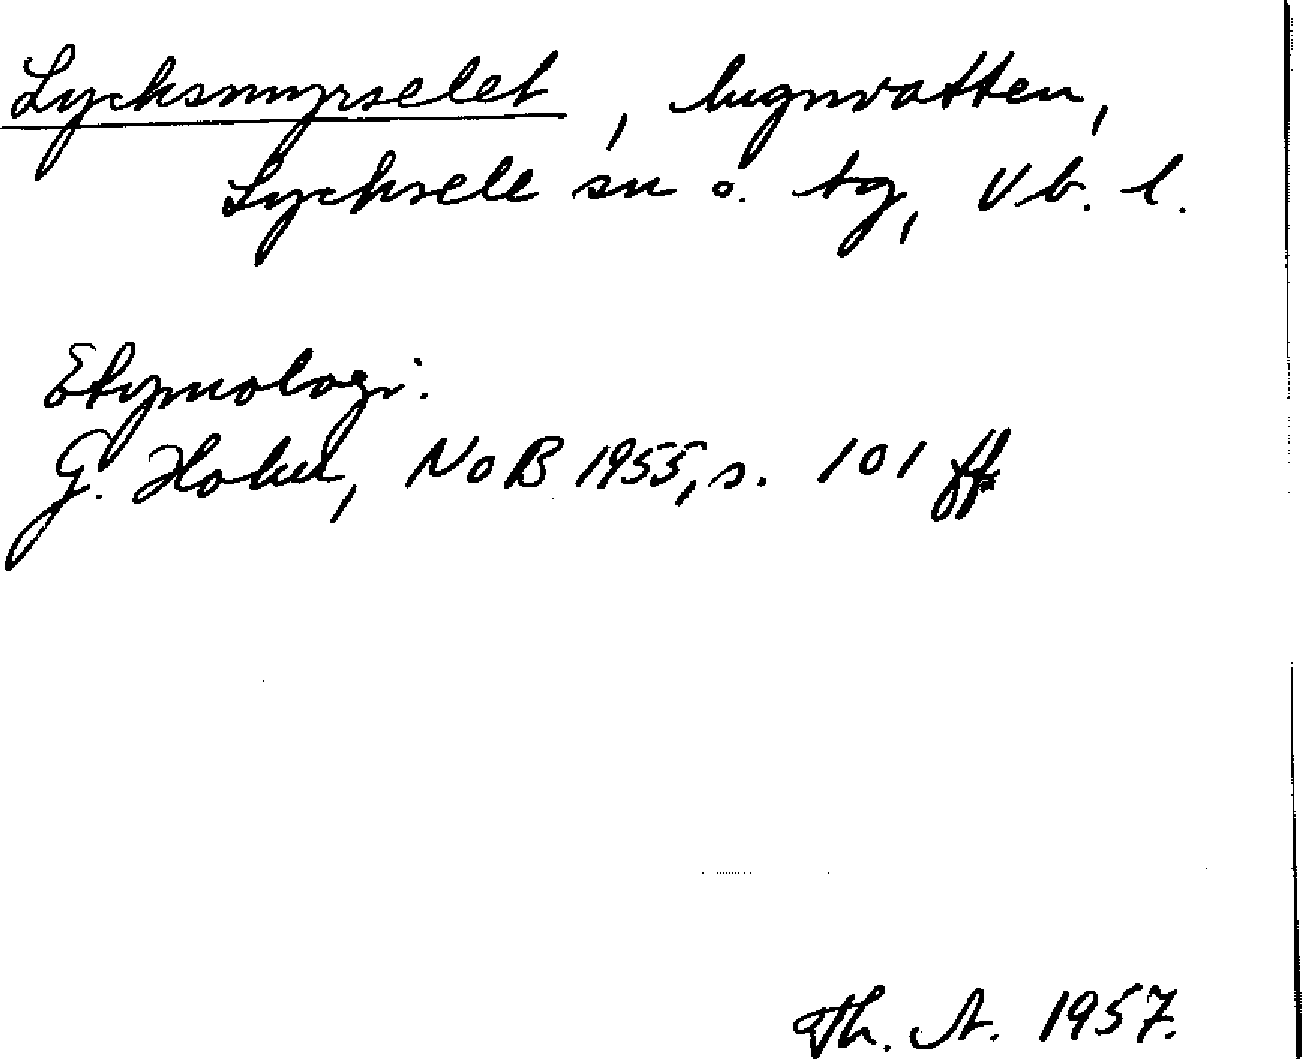 Lycksmyrselet, lugnvatten,
Lycksele sn o. tg, Vb. l.
Etymologi:
G. Holm, NoB 1955, s. 101 ff
Th. A. 1957.